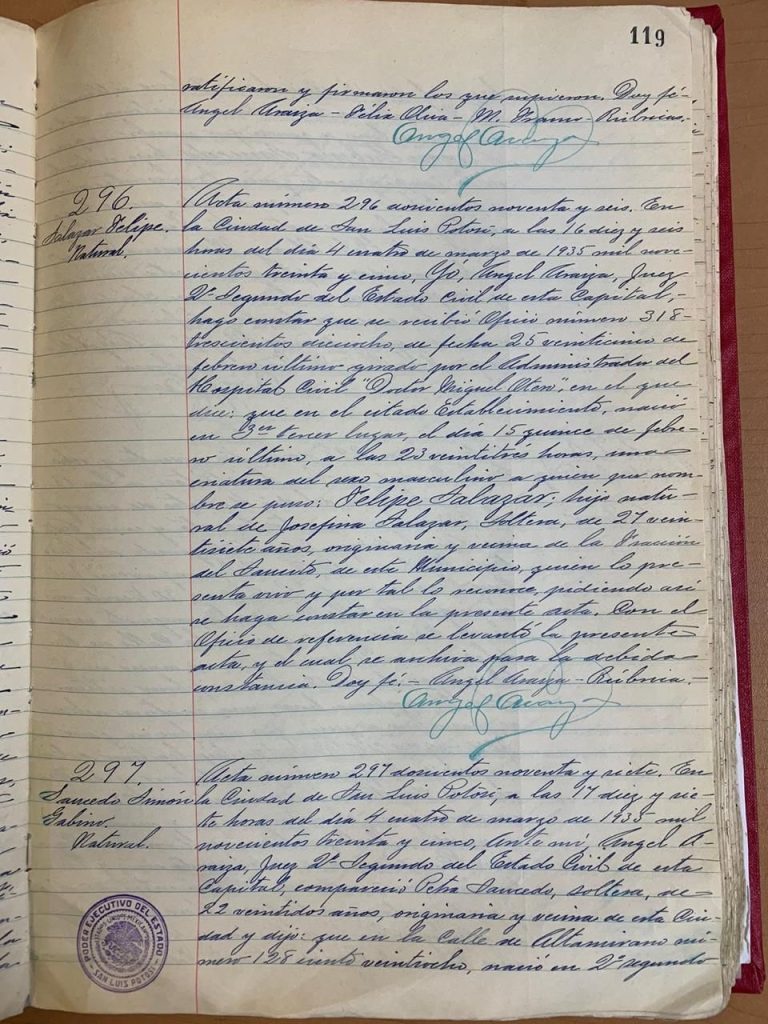 119
ratificaron y firmaron los que supieron. Doy fé.-
Angel Araiza - Félix Oliva - M. Franco - Rúbricas.
Angel Araiza
296.
Salazar Felipe.
Natural.
Acta número 296 doscientos noventa y seis. En
la Ciudad de San Luis Potosí, a las 16 diez y seis
horas del día 4 cuatro de marzo de 1935 mil nove-
cientos treinta y cinco, Yo, Angel Araiza, Juez
2º Segundo del Estado Civil de esta Capital,-
hago constar que se recibió Oficio número 318-
trescientos dieciocho, de fecha 25 veinticinco de
febrero último girado por el Administrador del
Hospital Civil "Doctor Miguel Otero" en el que
dice: que en el citado Establecimiento, nació
en 3er tercer lugar, el día 15 quince de febre-
ro último, a las 23 veintitrés horas, una
criatura del sexo masculino a quien por nom-
bre se puso: Felipe Salazar; hijo natu-
ral de Josefina Salazar, soltera, de 27 vein-
tisiete años, originaria y vecina de la Fracción
del Saucito, de este Municipio, quien lo pre-
senta vivo y por tal lo reconoce, pidiendo así
se haga constar en la presente acta. Con el
Oficio de referencia se levantó la presente
acta, y el cual se archiva para la debida
constancia. Doy fé.- Angel Araiza - Rúbrica.-
Angel Araiza
297.
Saucedo Simón
Gabino.
Natural.
Acta número 297 doscientos noventa y siete. En
la Ciudad de San Luis Potosí, a las 17 diez y sie-
te horas del día 4 cuatro de marzo de 1935 mil
novecientos treinta y cinco, ante mí, Angel A-
raiza, Juez 2º Segundo del Estado Civil de esta
Capital, compareció Petra Saucedo, soltera, de
22 veintidos años, originaria y vecina de esta Ciu-
dad y dijo: que en la Calle de Altamirano nú-
mero 128 ciento veintiocho, nació en 2º segundo
PODER EJECUTIVO DEL ESTADO
ESTADOS UNIDOS MEXICANOS
SAN LUIS POTOSI